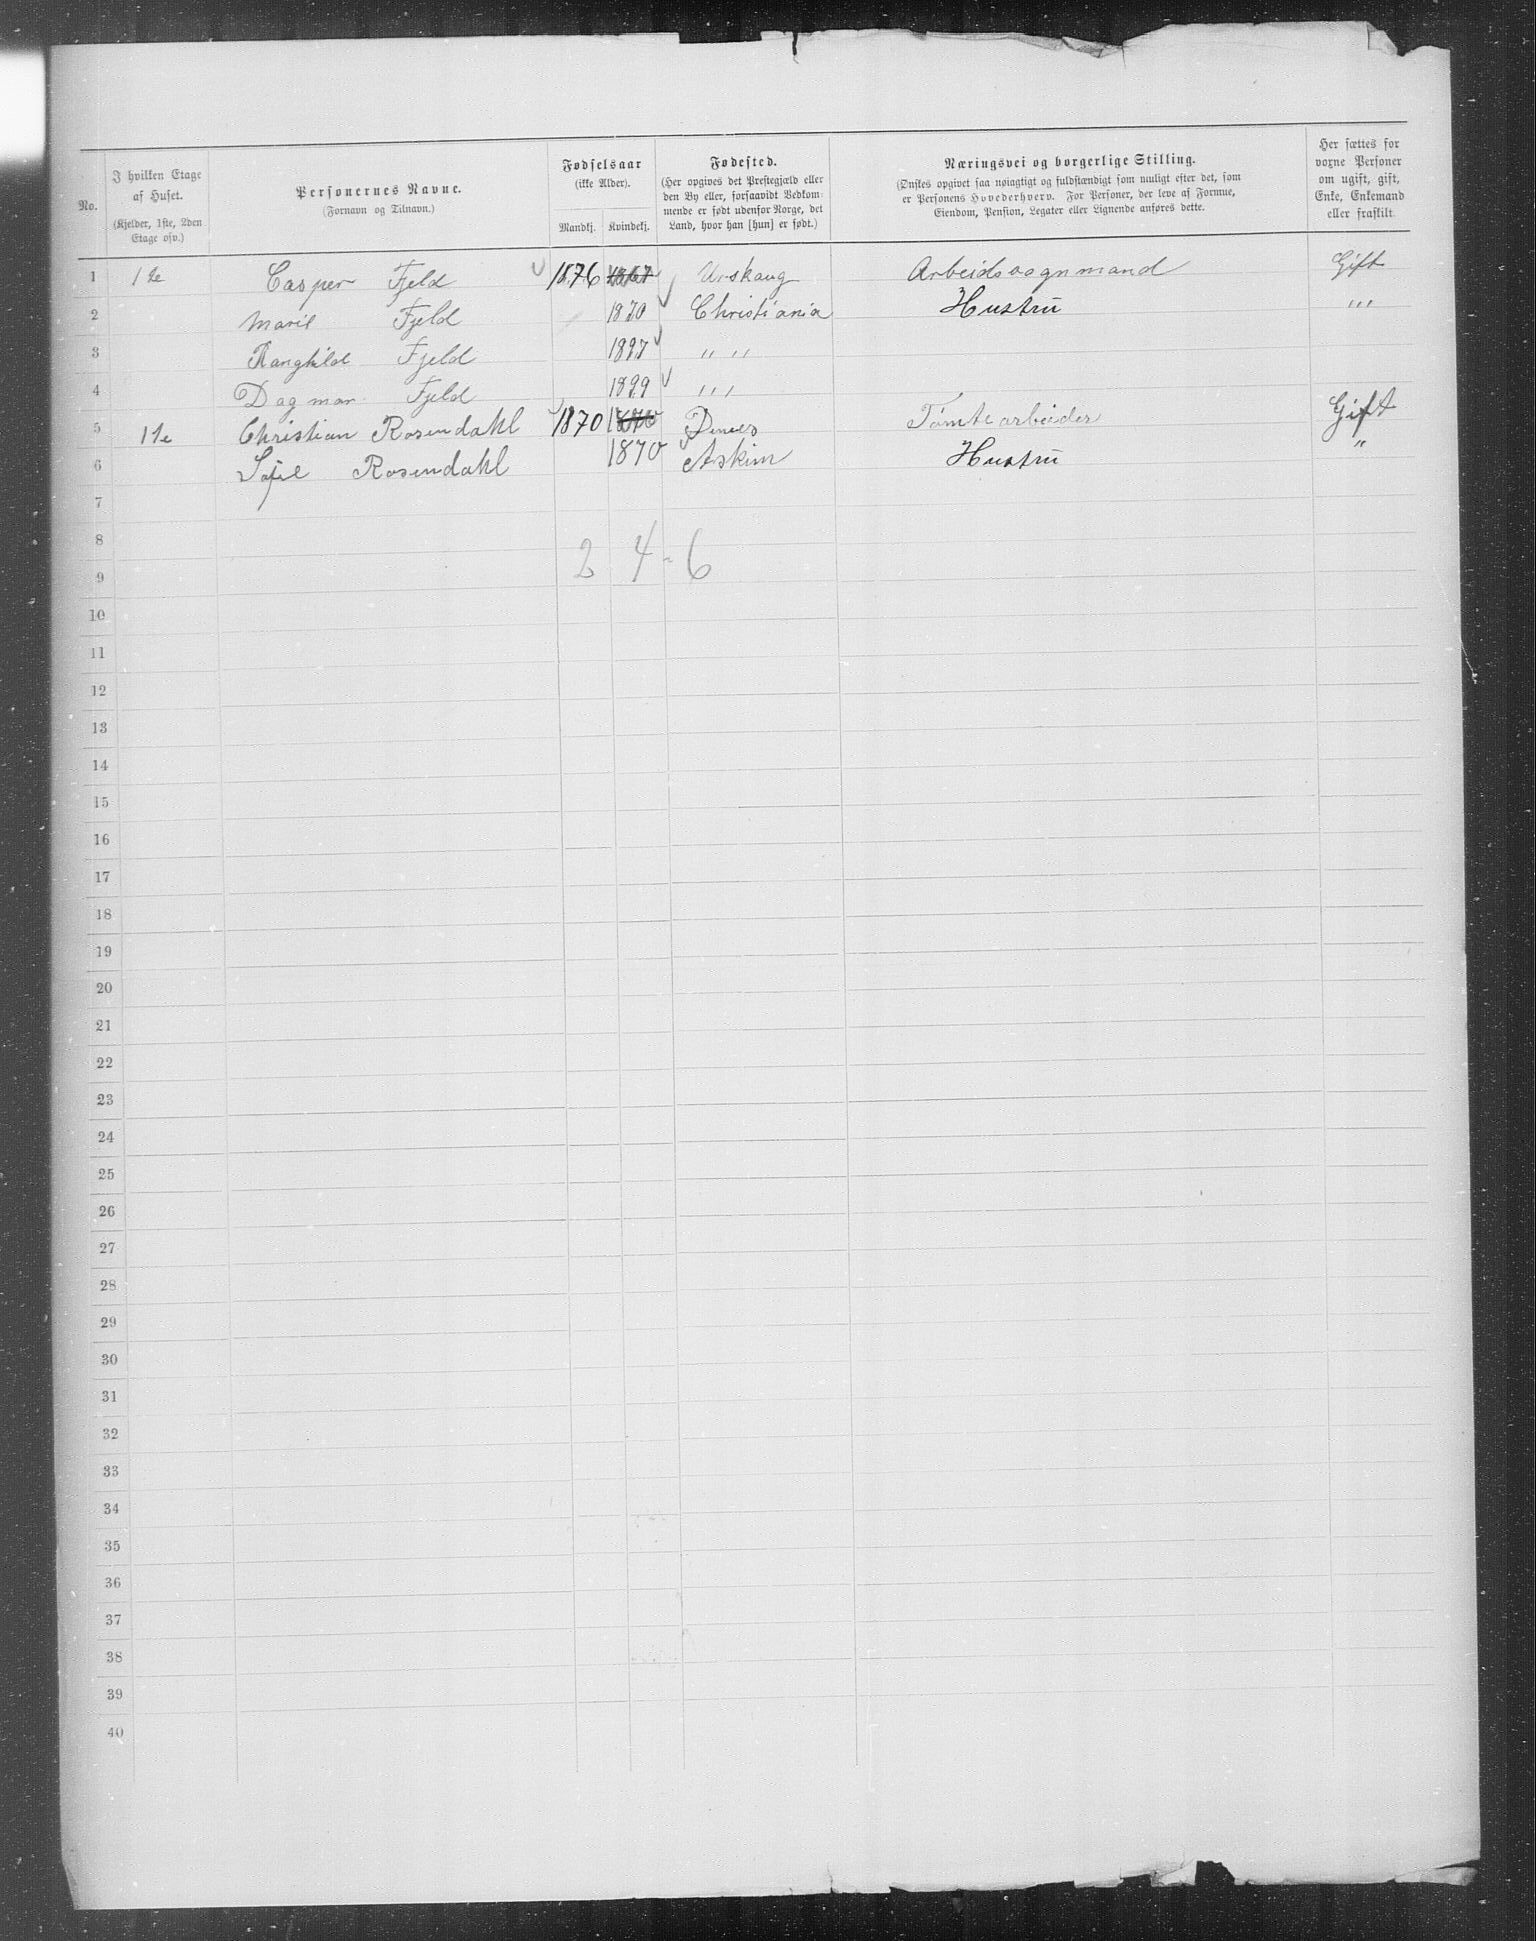 No.
I hvilken Etage af Huset.
(Kjelder, 1ste, 2den Etage osv.)
Personernes Navne.
(Fornavn og Tilnavn.)
Fødselsaar
(ikke Alder).
Mandkj. Kvindekj.
Fødested.
(Her opgives det Prestegjæld eller den By eller, forsaavidt Vedkommende er født udenfor Norge, det Land, hvor han [hun] er født.)
Næringsvei og borgerlige Stilling.
(Ønskes opgivet saa nøiagtigt og fuldstændigt som muligt efter det, som er Personens Hovederhverv. For Personer, der leve af Formue, Eiendom, Pension, Legater eller Lignende anføres dette.
Her sættes for voxne Personer om ugift, gift, Enke, Enkemand eller fraskilt.
1 1ste Casper Fjeld 1876 Urskaug Arbeidsvognmand Gift
2 Marie Fjeld 1870 Christiania Hustru "'
3 Ranghild Fjeld 1897 " "
4 Dagmar Fjeld 1899 "'
5 1ste Christian Rosendahl 1870 Tomtearbeider Gift
6 Sofie Rosendahl 1870 Askim Hustru "
7
8
2 4 - 6
9
10
11
12
13
14
15
16
17
18
19
20
21
22
23
24
25
26
27
28
29
30
31
32
33
34
35
36
37
38
39
40